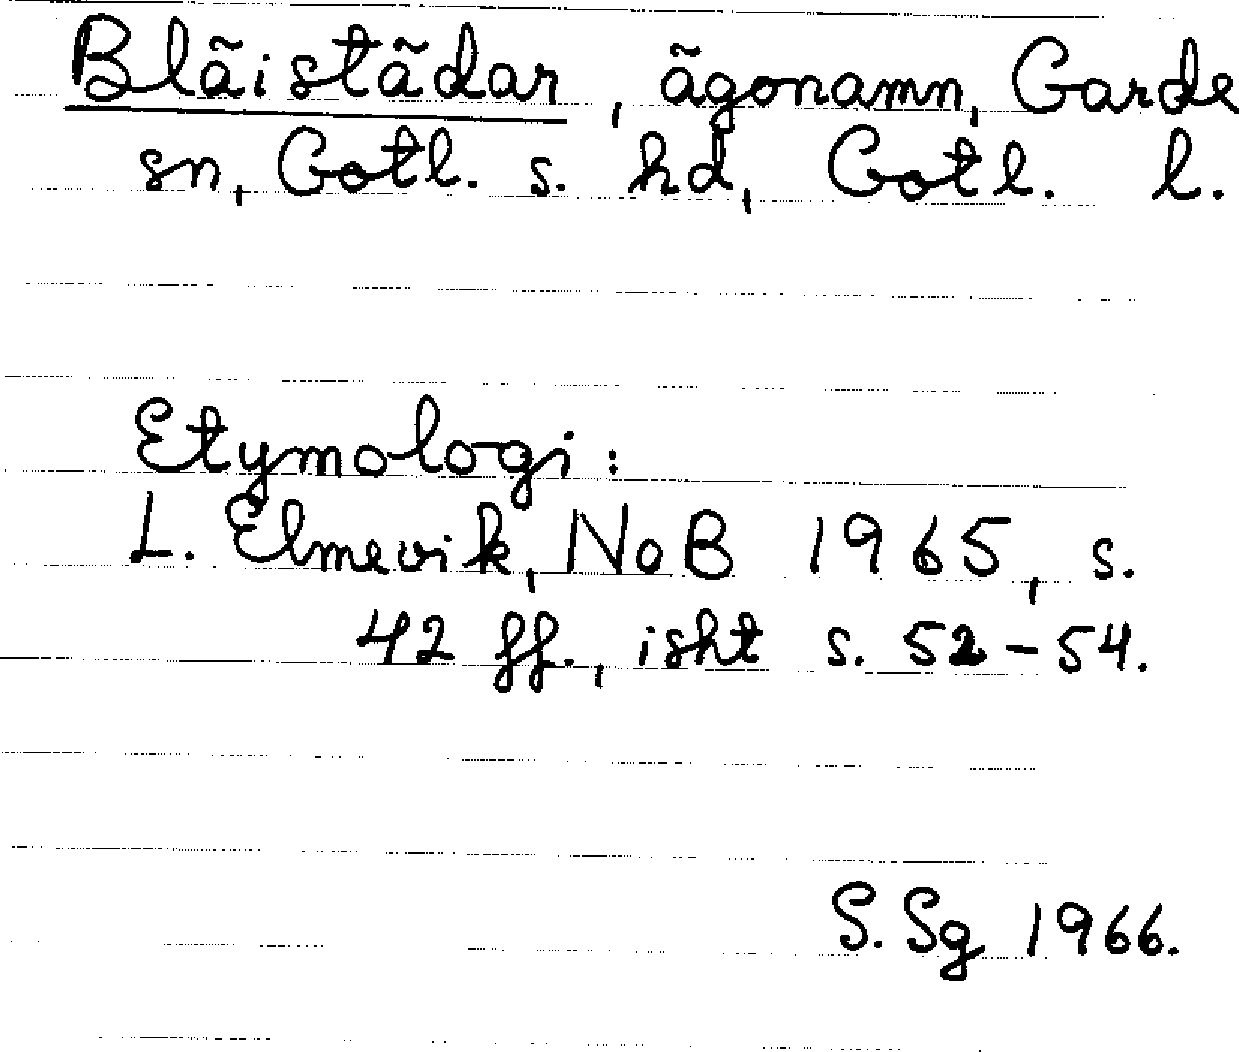 Bläistädar, ägonamn, Garde
sn, Gotl. s. hd, Gotl. l.
Etymologi:
L. Elmevik, NoB 1965, s.
42 ff., isht s. 52-54.
S. Sg 1966.